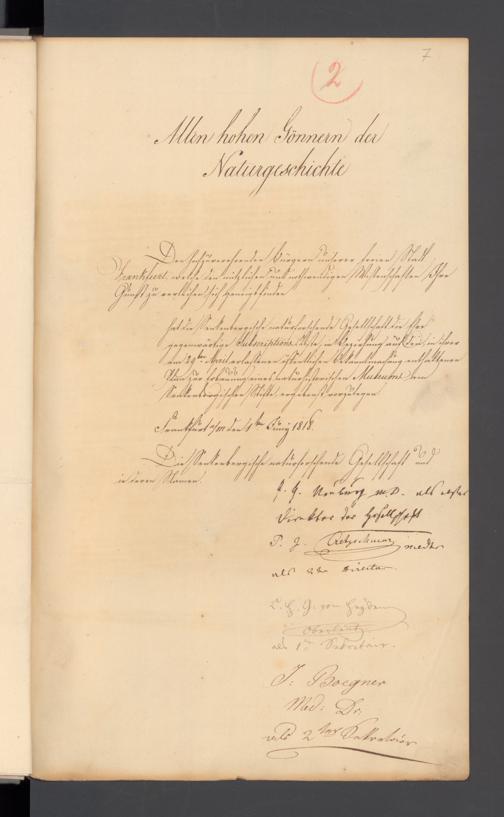 7
2
Allen hohen Gönnern der
Naturgeschichte
Den hochzuverehrenden Bürgern unserer freien Stadt
Frankfurt, welche den nützlichen und nothwendigen Wissenschaften ihre
Gunst zu verleihen sich
hat die Senkenbergische naturforschende Gesellschaft die Ehre
gegenwärtige Subscriptions Liste, in Beziehung auf den, in ihrer
am 29ten April erlassenen öffentlichen Bekanntmachung enthaltenen
Plan zur Erbauung eines naturhistorischen Museums, dem
Senkenbergischen Stifte, ergebenst vorzulegen
Frankfurt a/m den 1ten Juny 1818.
Die Senkenbergische naturforschende Gesellschaft und
in deren Namen.
J. G. Neuburg m.D. als erster
Direktor der Gesellschaft
P. J. Cretzschmar
als 2ter Director.
C. H. G. von Heyden
Oberleut.
als 1r Sekretair.
J: Boegner
Med: Dr:
als 2ter Sekretair